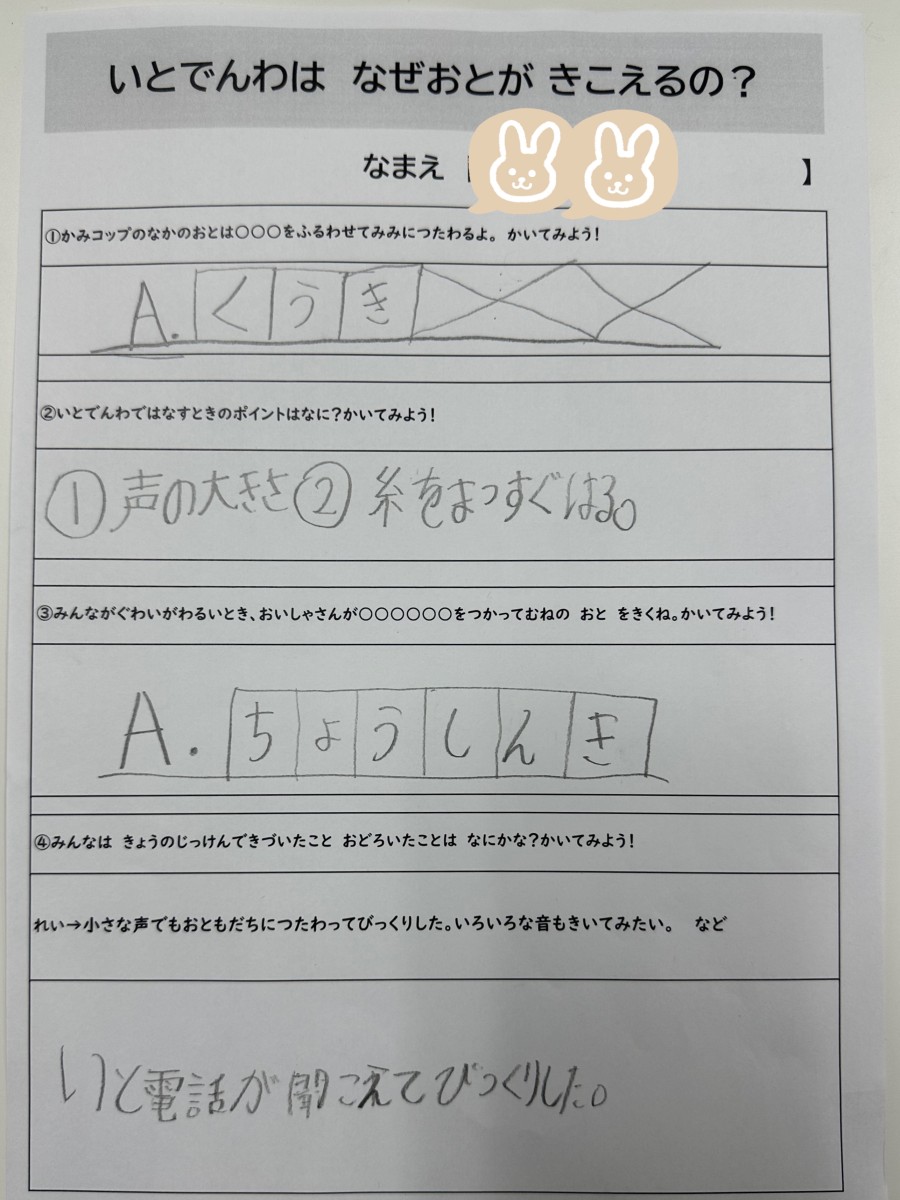 いとでんわは なぜおとが きこえるの？
なまえ【 】
①かみコップのなかのおとは〇〇〇をふるわせてみみにつたわるよ。かいてみよう！
A. くうき
②いとでんわではなすときのポイントはなに？かいてみよう！
①声の大きさ②糸をまっすぐはる。
③みんながぐわいがわるいとき、おいしゃさんが〇〇〇〇〇〇をつかってむねの おと をきくね。かいてみよう！
A. ちょうしんき
④みんなは きょうのじっけんできづいたこと おどろいたことは なにかな？かいてみよう！
れい→小さな声でもおともだちにつたわってびっくりした。いろいろな音もきいてみたい。 など
いと電話が聞こえてびっくりした。